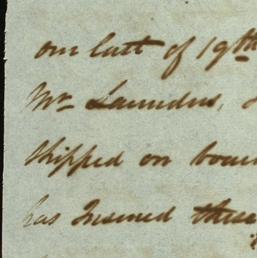 our last of 19th
Mr Saunders,
shipped on
has Insured these